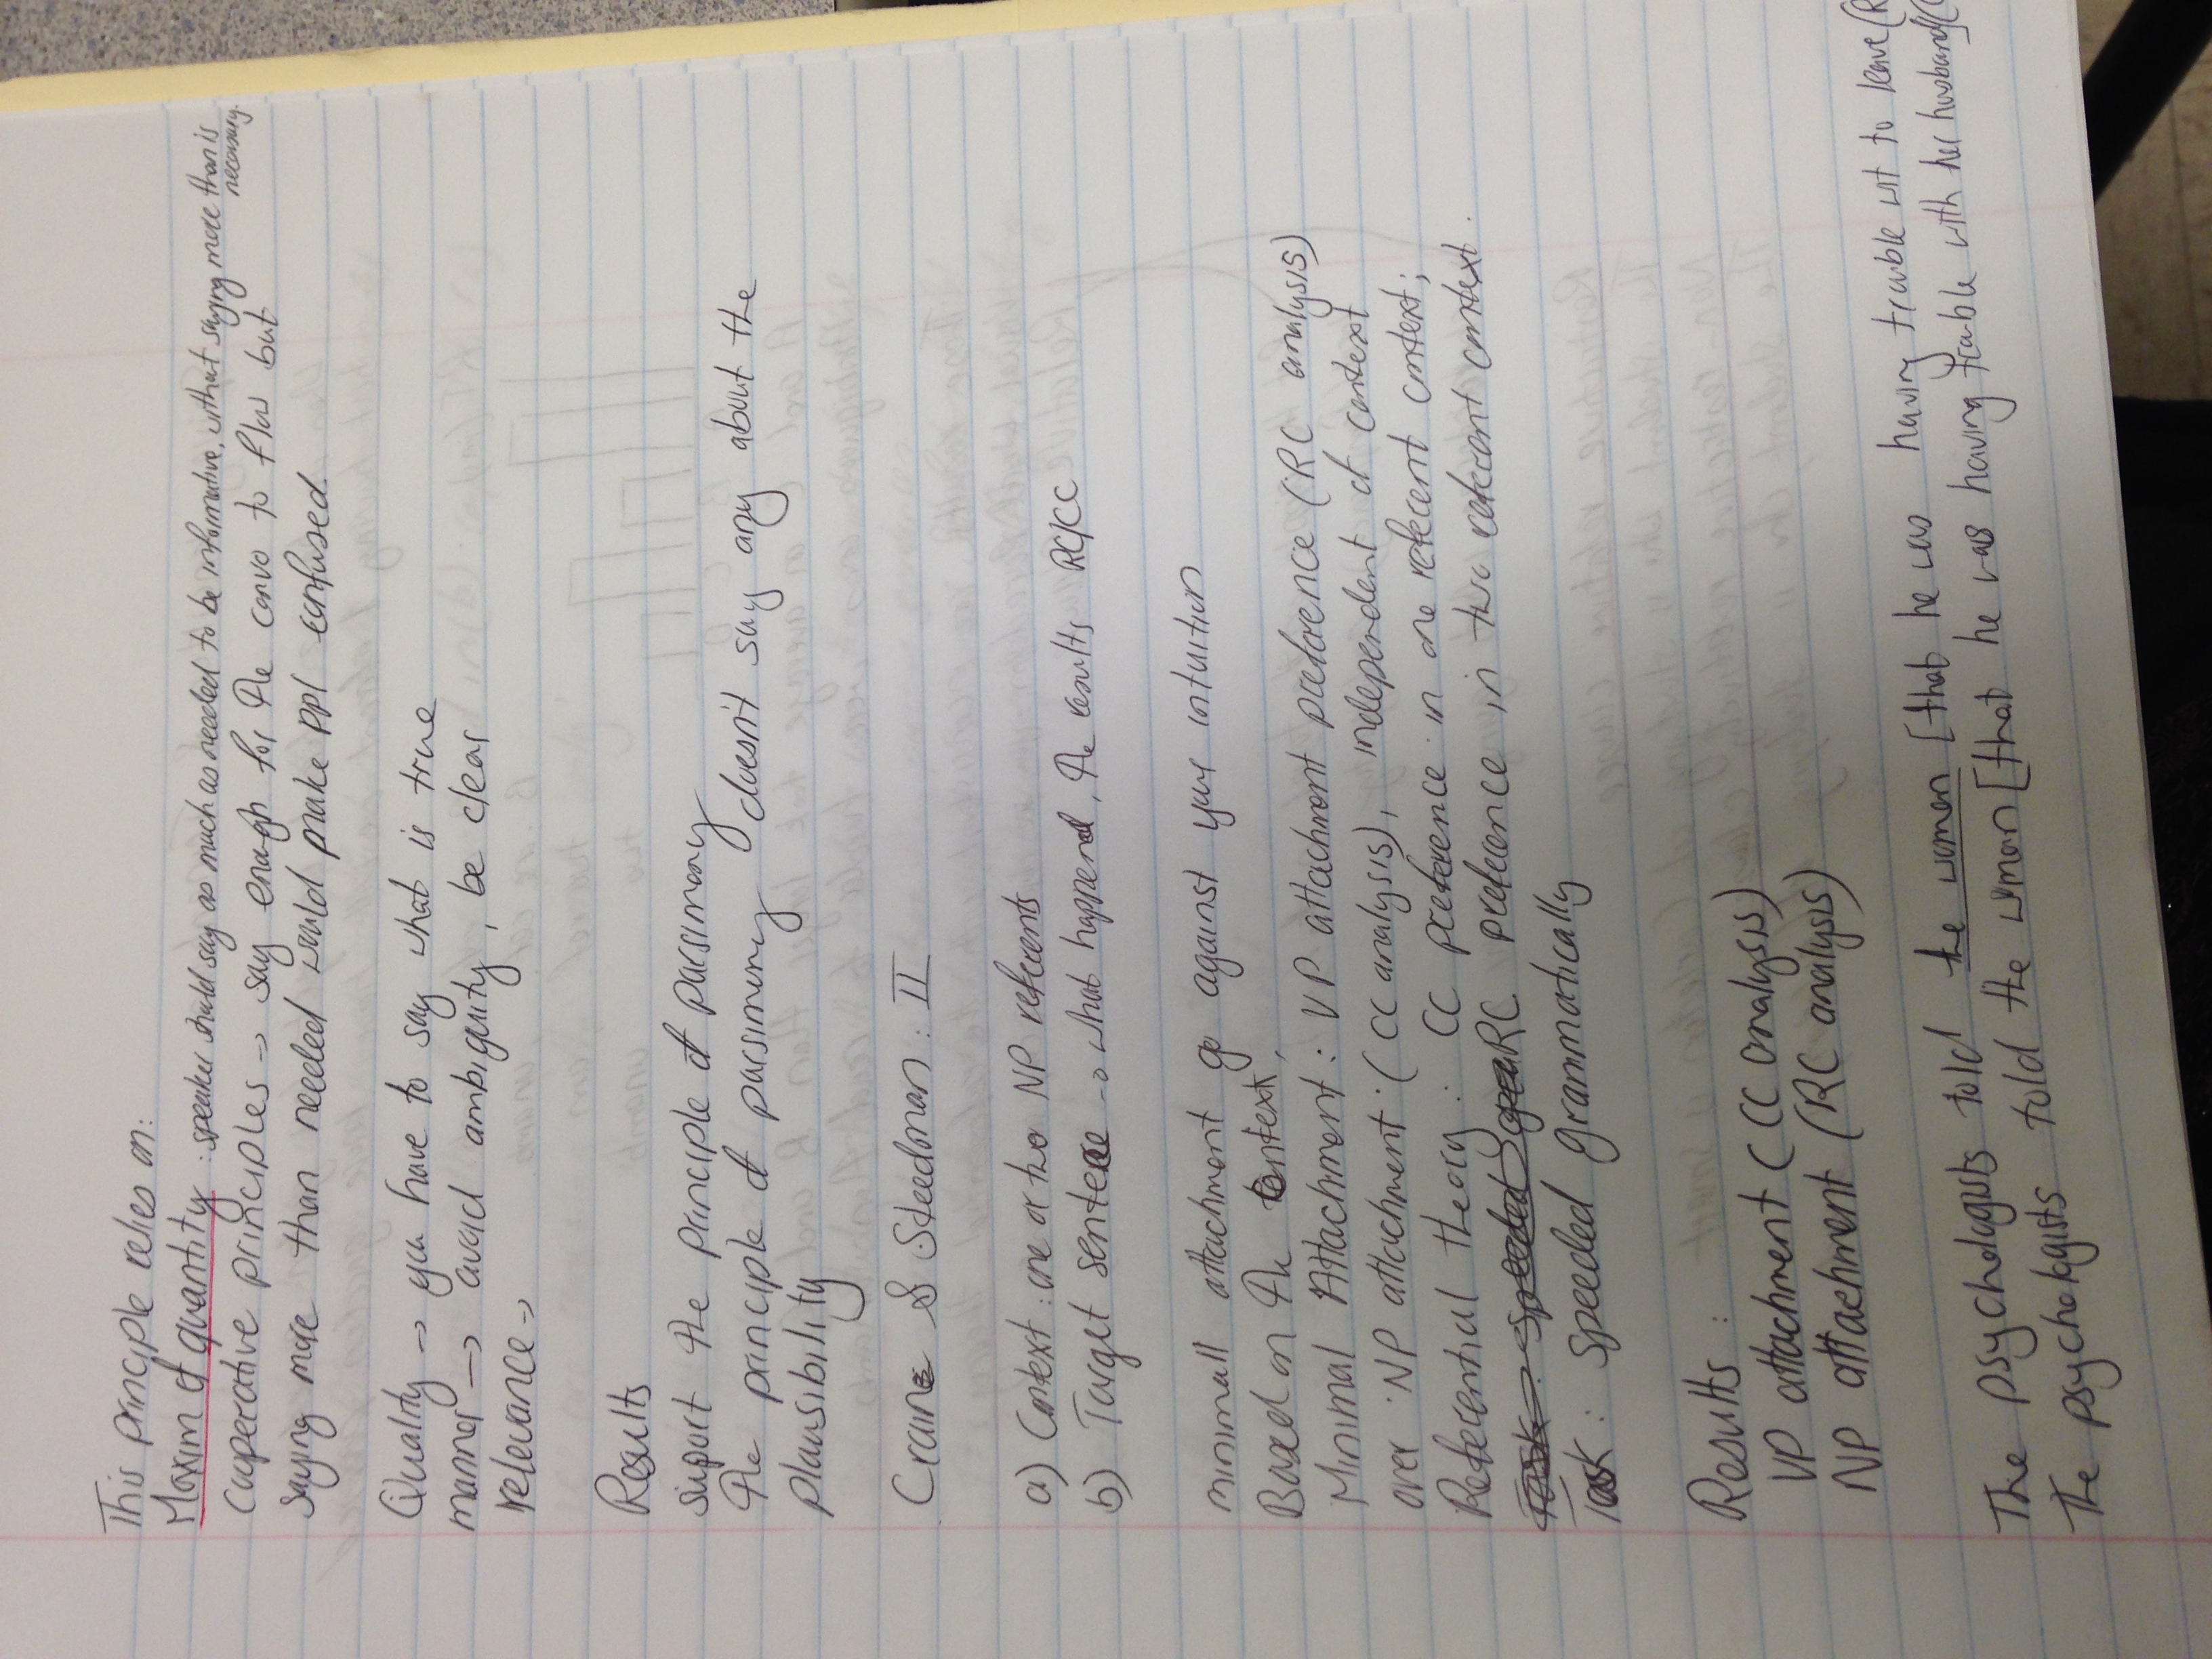 This principle relies on:
Maxim of quantity : speaker should say as much as needed to be informative, without saying more than is necessary.
Cooperative principles -> say enough for the convo to flow but
saying more than needed would make ppl confused.
Quality -> you have to say what is true
manner -> avoid ambiguity, be clear
relevance ->
Results
support the principle of parsimony
the principle of parsimony doesn't say any about the
plausibility
Crain & Steedman : II
a) Context : one or two NP referents
b) Target sentence -> what happend, the results RC/CC
minimall attachment go against your intuition
Based on the context,
Minimal Attachment : VP attachment preference (RC analysis)
over NP attachment (CC analysis), independent of context
Referential theory : CC preference in one referent context;
RC preference in two referent context.
Task : speeded grammatically
Results :
VP attachment (CC analysis)
NP attachment (RC analysis)
The psychologists told the women [that he was having trouble wit to leave (R
The psychologists told the woman [that he was having trouble with her husband (C